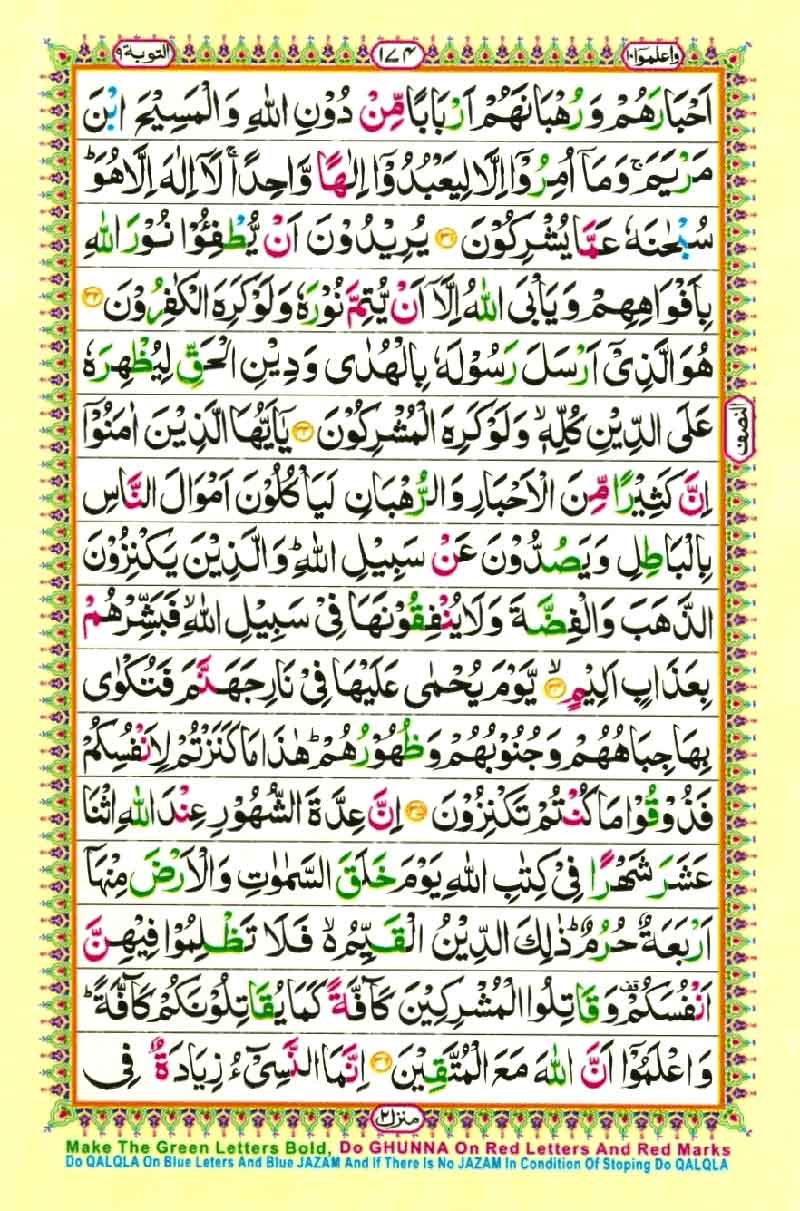 التوبة ٩ ١٧٤ واعلموٓا ١٠
اَحْبَارَهُمْ وَرُهْبَانَهُمْ اَرْبَابًا مِّنْ دُوْنِ اللّٰهِ وَالْمَسِيْحَ ابْنَ
مَرْيَمَ ۚ وَمَاۤ اُمِرُوْۤا اِلَّا لِيَعْبُدُوْۤا اِلٰهًا وَّاحِدًا ۚ لَاۤ اِلٰهَ اِلَّا هُوَ ؕ
سُبْحٰنَهٗ عَمَّا يُشْرِكُوْنَ ۝۳۱ يُرِيْدُوْنَ اَنْ يُّطْفِـُٔوْا نُوْرَ اللّٰهِ
بِاَفْوَاهِهِمْ وَيَاْبَى اللّٰهُ اِلَّاۤ اَنْ يُّتِمَّ نُوْرَهٗ وَلَوْ كَرِهَ الْكٰفِرُوْنَ ۝۳۲
هُوَ الَّذِىْۤ اَرْسَلَ رَسُوْلَهٗ بِالْهُدٰى وَدِيْنِ الْحَقِّ لِيُظْهِرَهٗ
عَلَى الدِّيْنِ كُلِّهٖ ۙ وَلَوْ كَرِهَ الْمُشْرِكُوْنَ ۝۳۳ يٰۤاَيُّهَا الَّذِيْنَ اٰمَنُوْۤا
النصف
اِنَّ كَثِيْرًا مِّنَ الْاَحْبَارِ وَالرُّهْبَانِ لَيَاْكُلُوْنَ اَمْوَالَ النَّاسِ
بِالْبَاطِلِ وَيَصُدُّوْنَ عَنْ سَبِيْلِ اللّٰهِ ؕ وَالَّذِيْنَ يَكْنِزُوْنَ
الذَّهَبَ وَالْفِضَّةَ وَلَا يُنْفِقُوْنَهَا فِىْ سَبِيْلِ اللّٰهِ ۙ فَبَشِّرْهُمْ
بِعَذَابٍ اَلِيْمٍ ۙ۝۳۴ يَّوْمَ يُحْمٰى عَلَيْهَا فِىْ نَارِ جَهَنَّمَ فَتُكْوٰى
بِهَا جِبَاهُهُمْ وَجُنُوْبُهُمْ وَظُهُوْرُهُمْ ؕ هٰذَا مَا كَنَزْتُمْ لِاَنْفُسِكُمْ
فَذُوْقُوْا مَا كُنْتُمْ تَكْنِزُوْنَ ۝۳۵ اِنَّ عِدَّةَ الشُّهُوْرِ عِنْدَ اللّٰهِ اثْنَا
عَشَرَ شَهْرًا فِىْ كِتٰبِ اللّٰهِ يَوْمَ خَلَقَ السَّمٰوٰتِ وَالْاَرْضَ مِنْهَاۤ
اَرْبَعَةٌ حُرُمٌ ؕ ذٰلِكَ الدِّيْنُ الْقَيِّمُ ۙ فَلَا تَظْلِمُوْا فِيْهِنَّ
اَنْفُسَكُمْ ۗ وَقَاتِلُوا الْمُشْرِكِيْنَ كَآفَّةً كَمَا يُقَاتِلُوْنَكُمْ كَآفَّةً ؕ
وَاعْلَمُوْۤا اَنَّ اللّٰهَ مَعَ الْمُتَّقِيْنَ ۝۳۶ اِنَّمَا النَّسِىْٓءُ زِيَادَةٌ فِى
منزل ٢
Make The Green Letters Bold, Do GHUNNA On Red Letters And Red Marks
Do QALQLA On Blue Leters And Blue JAZAM And If There Is No JAZAM In Condition Of Stoping Do QALQLA